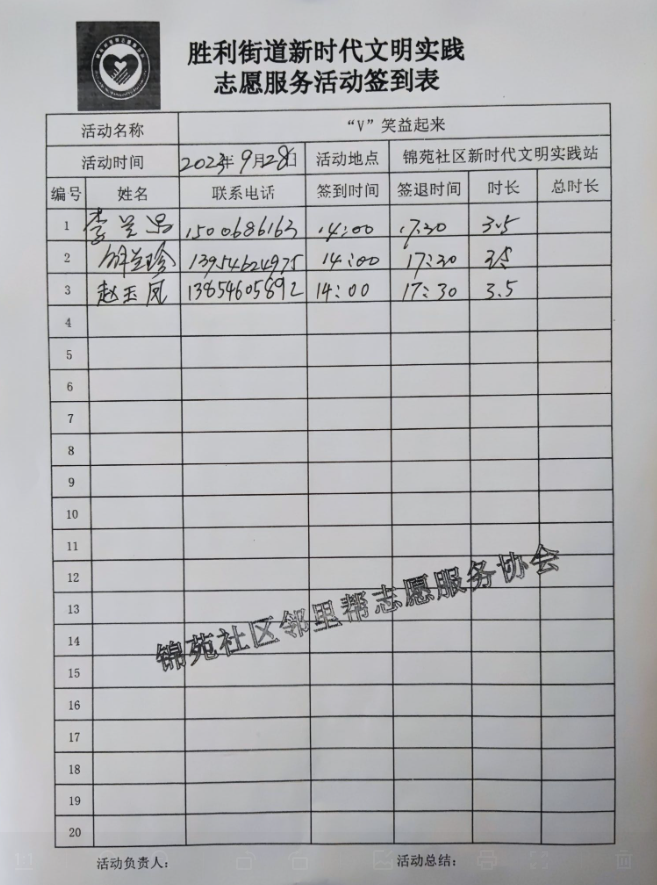 胜利街道新时代文明实践
志愿服务活动签到表
活动名称 “V”笑益起来
活动时间 2023年9月28日 活动地点 锦苑社区新时代文明实践站
编号 姓名 联系电话 签到时间 签退时间 时长 总时长
1 李兰 1500686163 14:00 17:30 3.5
2 兰珍 13954624975 14:00 17:30 3.5
3 赵玉凤 13854605892 14:00 17:30 3.5
4
5
6
7
8
9
10
11
12
13
14
15
16
17
18
19
20
锦苑社区邻里帮志愿服务协会
活动负责人： 活动总结：